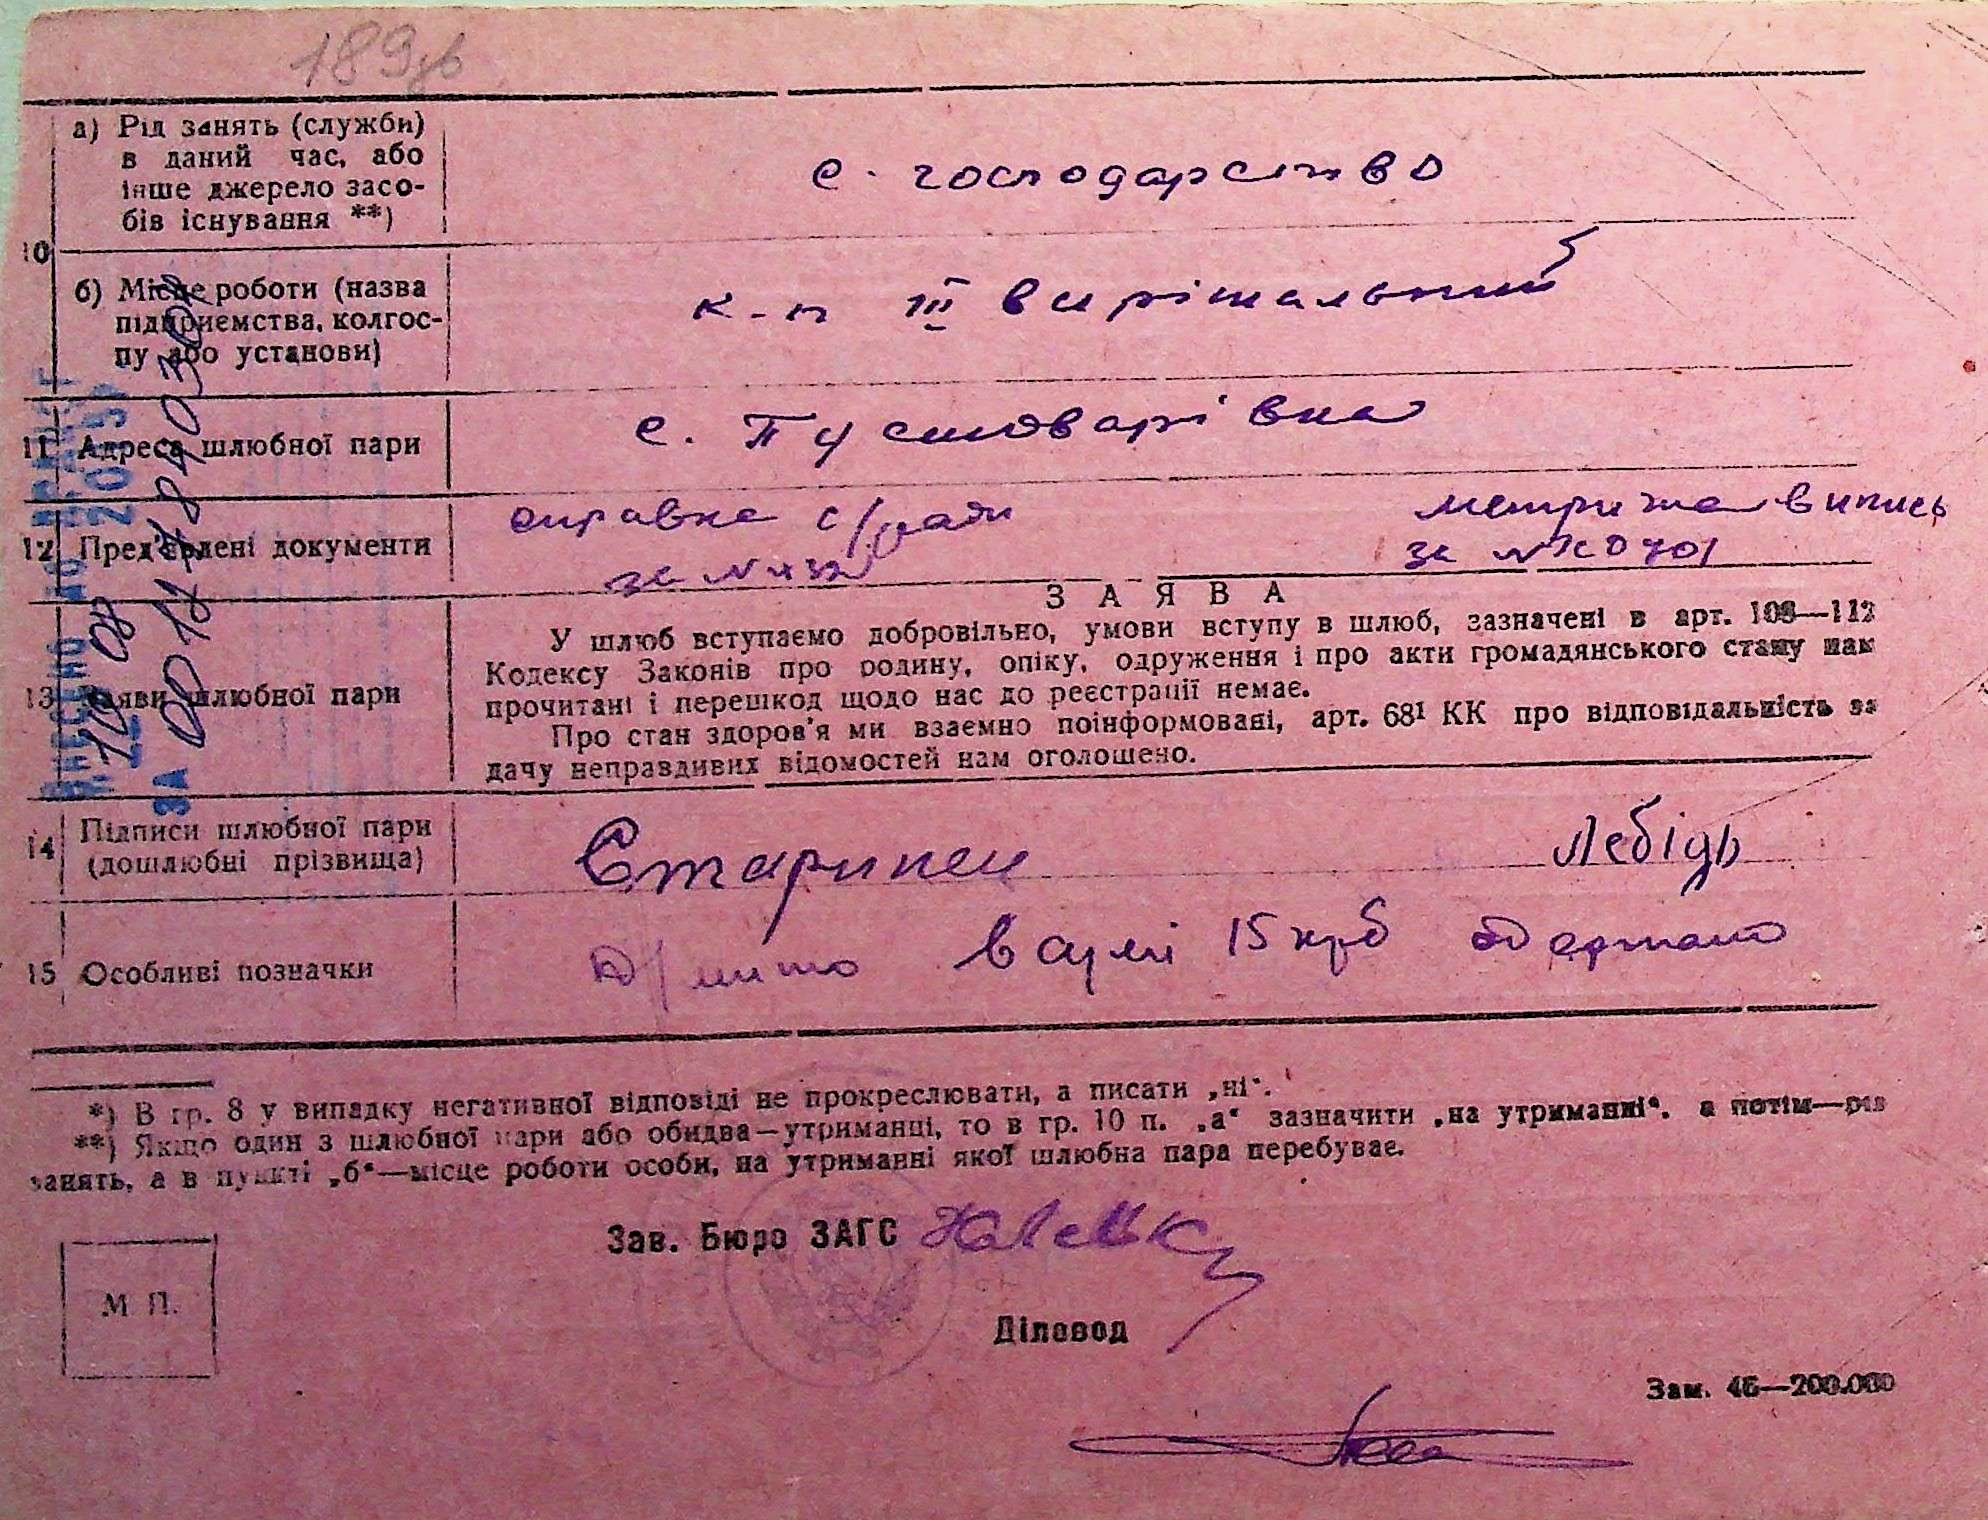 189зв
а) Рід занять (служби)
в даний час, або
інше джерело засо-
бів існування **)
с. господарство
10
б) Місце роботи (назва
підприємства, колгос-
пу або установи)
к-п III вирішальний
11 Адреса шлюбної пари
с. Пустоварівка
12 Пред'явлені документи
справка с/ради
за №
метрична випись
за №
13 Заяви шлюбної пари
ЗАЯВА
У шлюб вступаємо добровільно, умови вступу в шлюб, зазначені в арт. 108—112
Кодексу Законів про родину, опіку, одруження і про акти громадянського стану нам
прочитані і перешкод щодо нас до реєстрації немає.
Про стан здоров'я ми взаємно поінформовані, арт. 68¹ КК про відповідальність за
дачу неправдивих відомостей нам оголошено.
14 Підписи шлюбної пари
(дошлюбні прізвища)
Лебідь
15 Особливі позначки
Д/мито в сумі 15 крб одержано
*) В гр. 8 у випадку негативної відповіді не прокреслювати, а писати „ні“.
**) Якщо один з шлюбної пари або обидва—утриманці, то в гр. 10 п. „а“ зазначити „на утриманні“, а потім—рід
занять, а в пункті „б“—місце роботи особи, на утриманні якої шлюбна пара перебуває.
Зав. Бюро ЗАГС
М П.
Діловод
Зам. 46—200.000